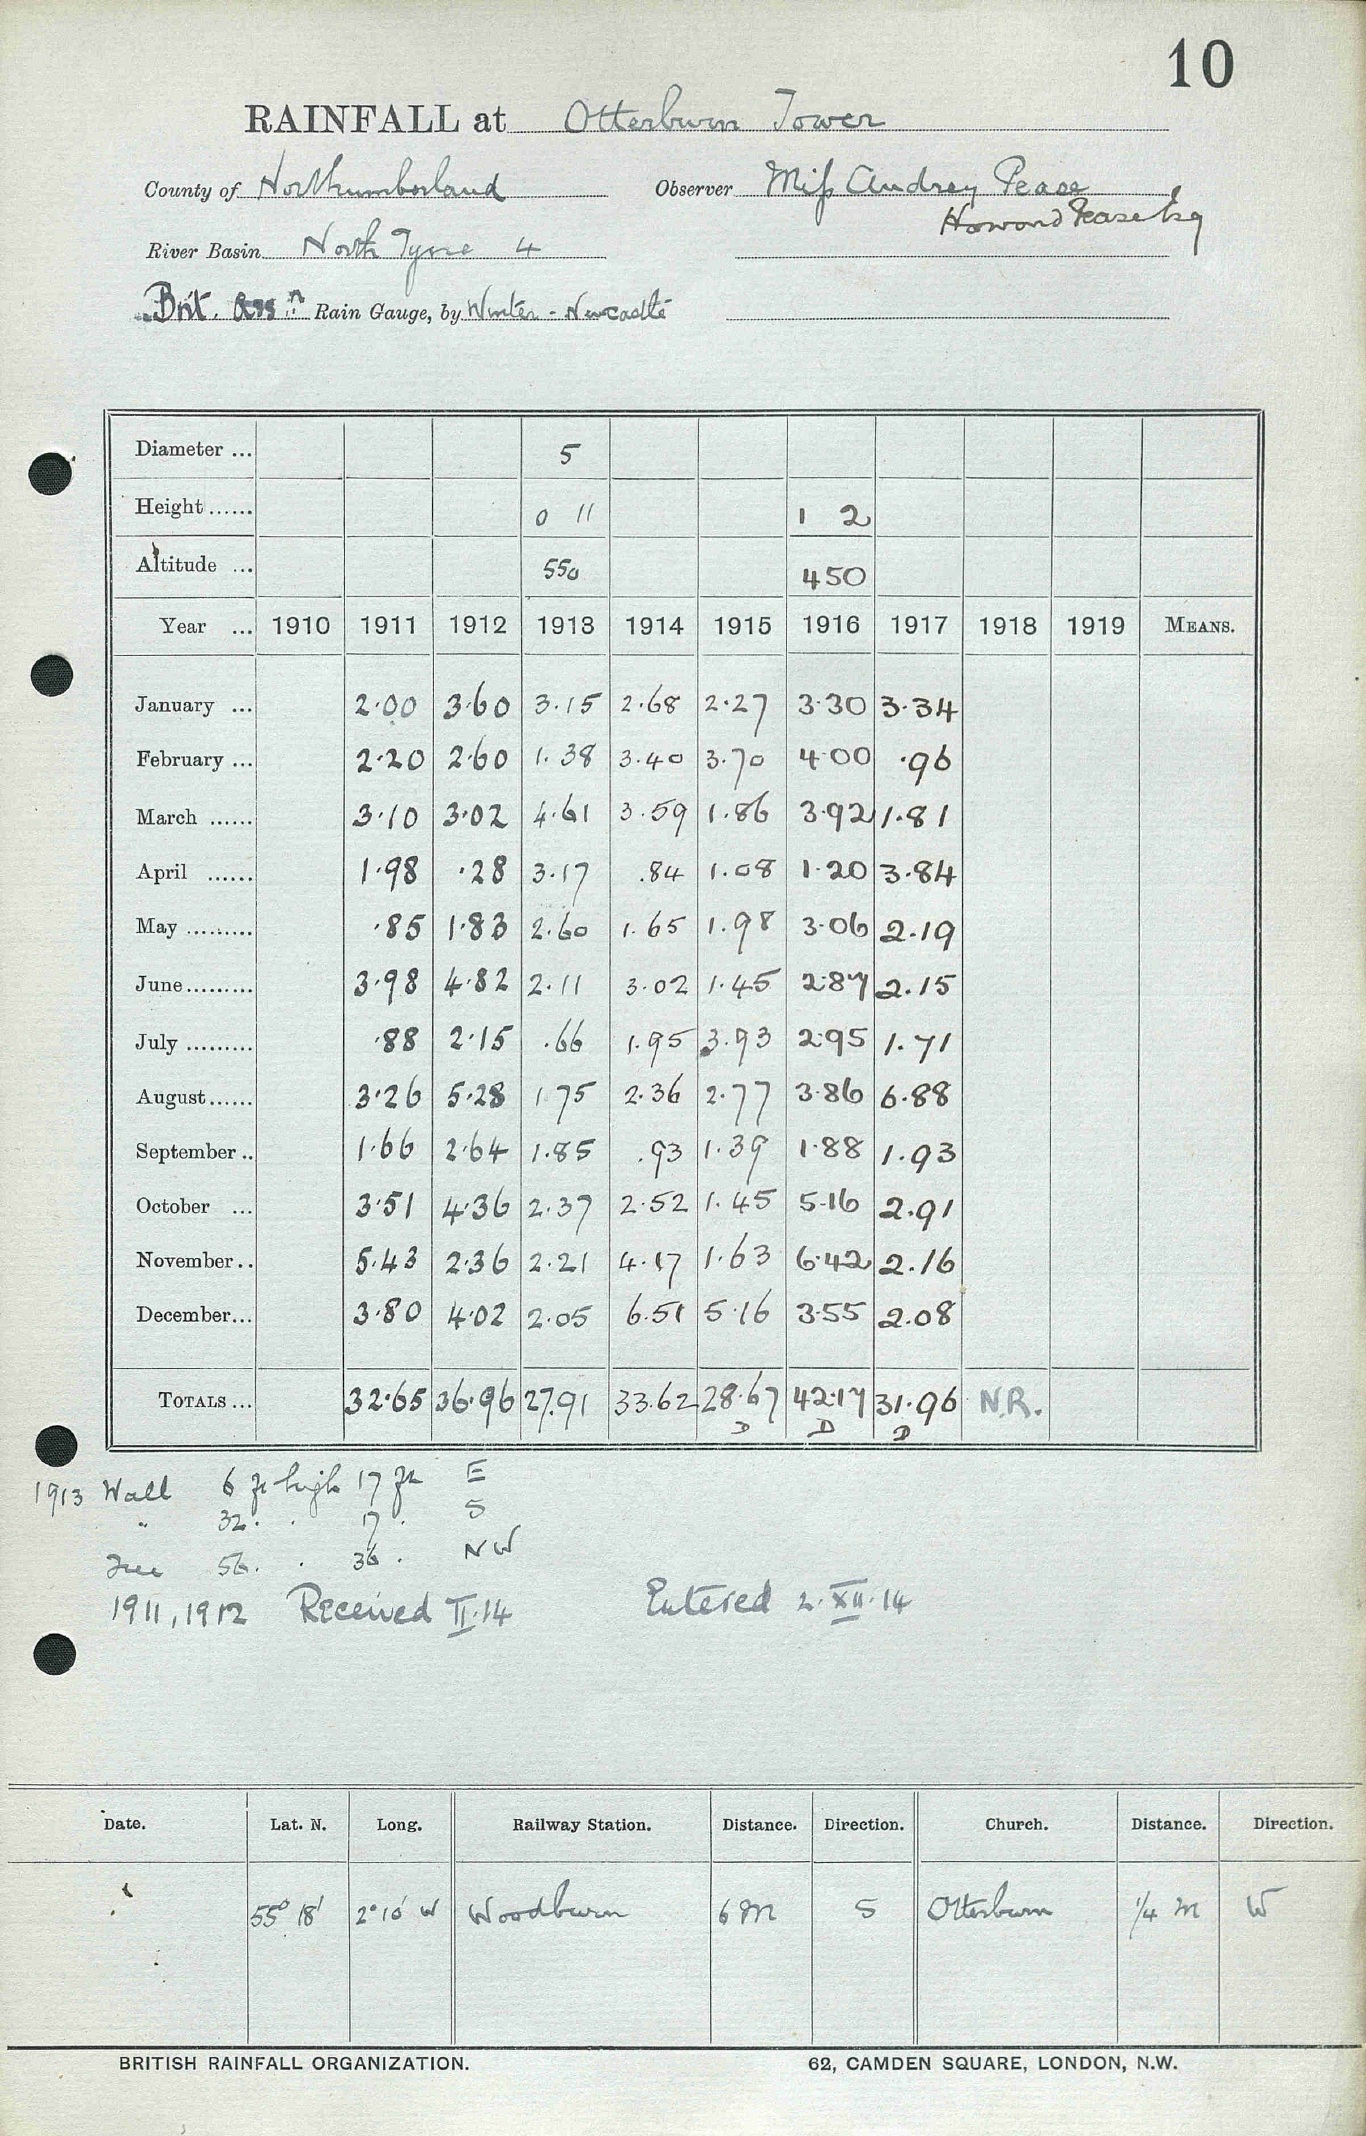 10
RAINFALL at Otterburn Tower
County of Northumberland Observer Miss Audrey Pease
Howard Pease Esq
River Basin North Tyne 4
Brit. Assn Rain Gauge, by Winter - Newcastle
Diameter ... 5
Height ...... 0 11 1 2
Altitude ... 550 450
Year ... 1910 1911 1912 1913 1914 1915 1916 1917 1918 1919 MEANS.
January ... 2.00 3.60 3.15 2.68 2.27 3.30 3.34
February ... 2.20 2.60 1.38 3.40 3.70 4.00 .96
March ...... 3.10 3.02 4.61 3.59 1.86 3.92 1.81
April ...... 1.98 .28 3.17 .84 1.08 1.20 3.84
May ......... .85 1.83 2.60 1.65 1.98 3.06 2.19
June ......... 3.98 4.82 2.11 3.02 1.45 2.87 2.15
July ......... .88 2.15 .66 1.95 3.93 2.95 1.71
August ...... 3.26 5.28 1.75 2.36 2.77 3.86 6.88
September .. 1.66 2.64 1.85 .93 1.39 1.88 1.93
October ... 3.51 4.36 2.37 2.52 1.45 5.16 2.91
November .. 5.43 2.36 2.21 4.17 1.63 6.42 2.16
December ... 3.80 4.02 2.05 6.51 5.16 3.55 2.08
TOTALS ... 32.65 36.96 27.91 33.62 28.67 42.17 31.96 N.R.
D D D
1913 Wall 6 ft high 17 ft E
" 32 . . 17 . S
Tree 56 . . 36 . NW
1911, 1912 Received II.14 Entered 2.XII.14
Date. Lat. N. Long. Railway Station. Distance. Direction. Church. Distance. Direction.
55° 18' 2° 10' W Woodburn 6 M S Otterburn 1/4 M W
BRITISH RAINFALL ORGANIZATION. 62, CAMDEN SQUARE, LONDON, N.W.